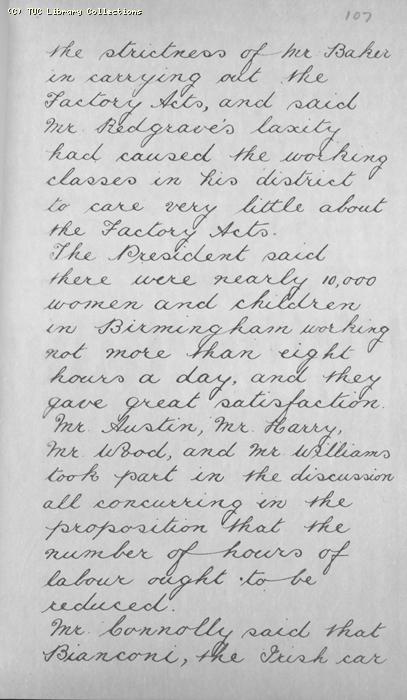 (C) TUC Library Collections
107
the strictness of Mr Baker
in carrying out the
Factory Acts, and said
Mr. Redgrave's laxity
had caused the working
classes in his district
to care very little about
the Factory Acts.
The President said
there were nearly 10,000
women and children
in Birmingham working
not more than eight
hours a day, and they
gave great satisfaction.
Mr. Austin, Mr. Harry,
Mr. Wood, and Mr. Williams
took part in the discussion
all concurring in the
proposition that the
number of hours of
labour ought to be
reduced.
Mr. Connolly said that
Bianconi, the Irish car